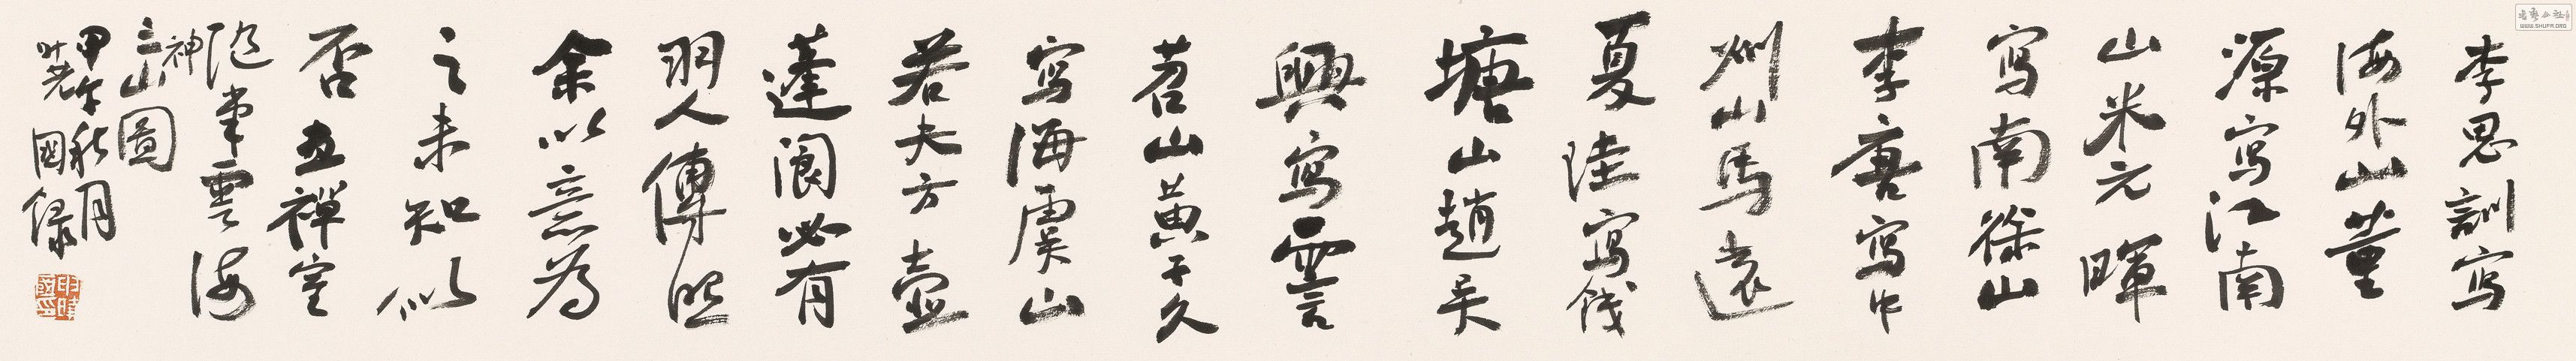 李思訓寫
海外山董
源寫江南
山米元暉
寫南徐山
李唐寫中
州山馬遠
夏珪寫錢
塘山趙吳
興寫霅
苕山黄子久
寫海虞山
若夫方壺
蓬閬必有
羽人傳照
余以意為
之未知似
否畫禪室
隨筆雲海
三神山圖
甲午秋月
國錄
WWW.SHUFA.ORG